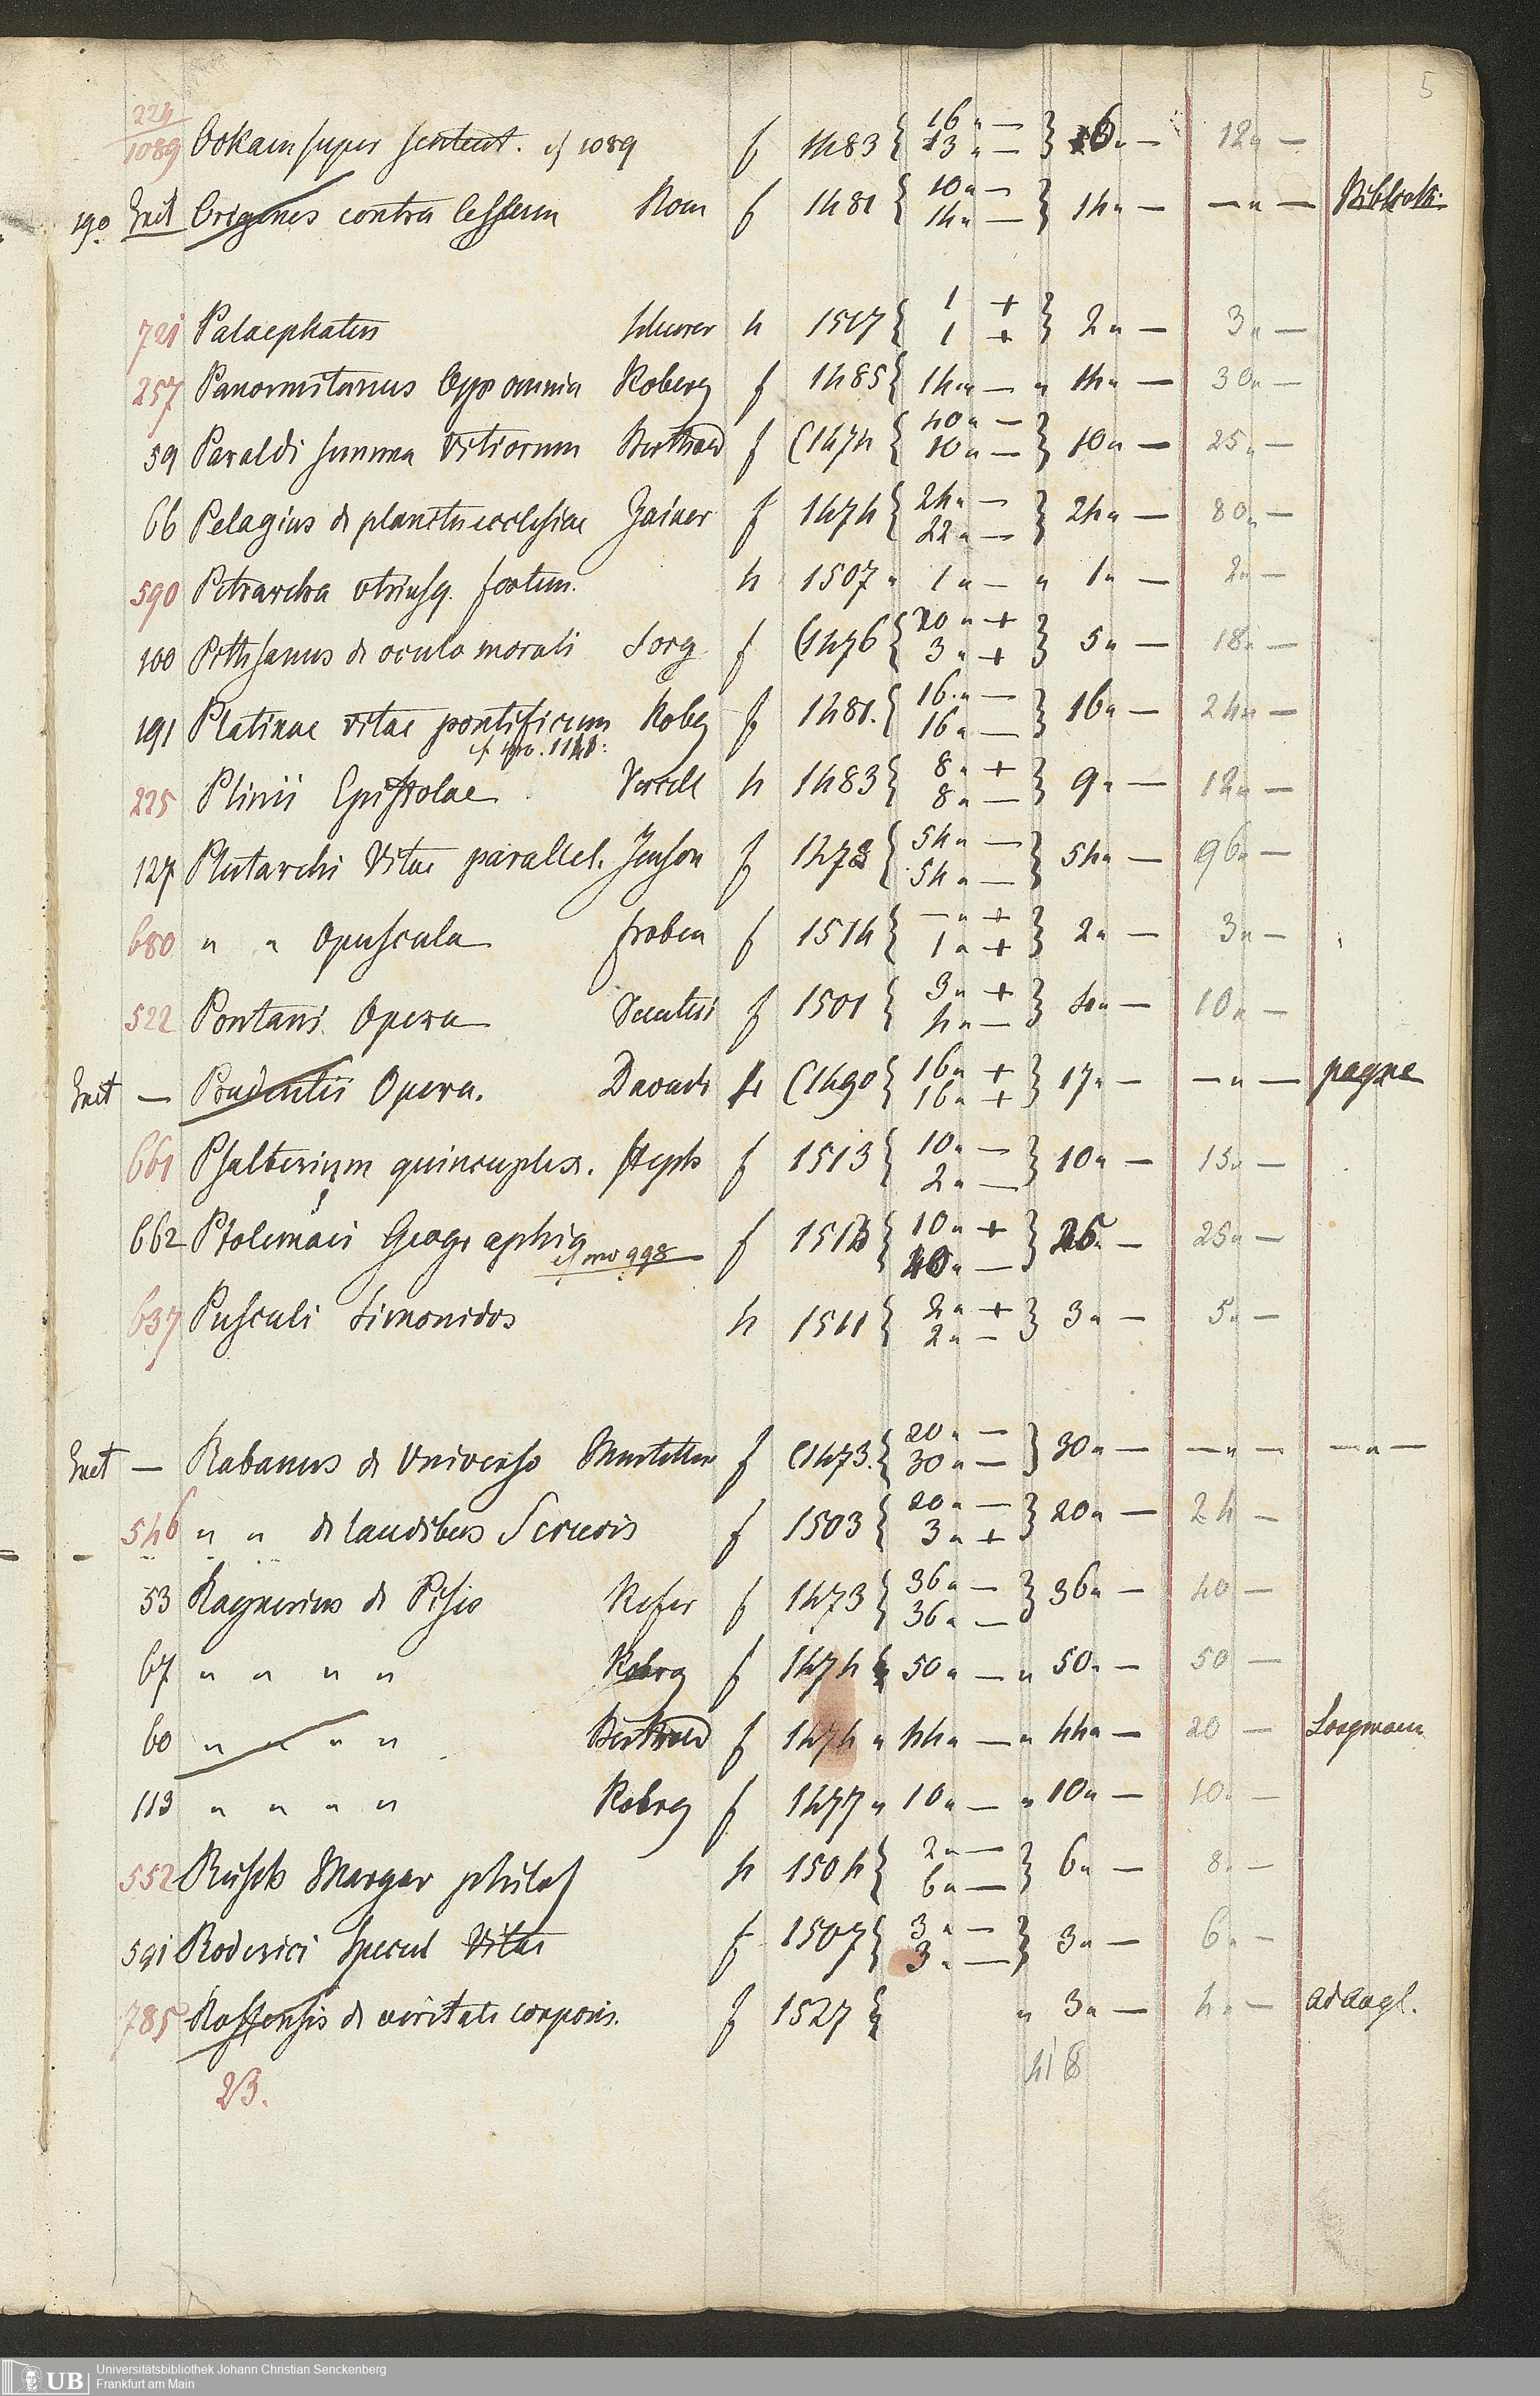 5
224/1089 Ockam super sentent. cf 1089 f 1483 { 16 " — 13 " — } 16 " — 12 " —
190 Exit Origenes contra Celsum Rom f 1481 { 10 " — 14 " — } 14 " — — " — Biblioth:
721 Palaephatus Schurer 4 1517 { 1 + 1 + } 2 " — 3 " —
257 Panormitanus Opp omnia Koberg f 1485 { 14 " — " 14 " — 30 " —
59 Paraldi Summa Vitiorum Berthold f (1474 { 40 " — 10 " — } 10 " — 25 " —
66 Pelagius de planctu ecclesiae Zainer f 1474 { 24 " — 22 " — } 24 " — 80 " —
590 Petrarcha utriusq. fortun. 4 1507 " 1 " — " 1 " — 2 " —
100 Pithsanus de oculo morali Sorg f (1476 { 20 " + 3 " + } 5 " — 18 " —
191 Platinae vitae pontificum Kobeg f 1481. { 16 " — 16 " — } 16 " — 24 " —
cf nro.
225 Plinii Epistolae Vercell 4 1483 { 8 " + 8 " — } 9 " — 12 " —
127 Plutarchi Vitae parallel. Jenson f 1478 { 54 " — 54 " — } 54 " — 96 " —
680 " " Opuscula Froben f 1514 { — " + 1 " + } 2 " — 3 " —
522 Pontani Opera f 1501 { 3 " + 4 " — } 4 " — 10 " —
Exit — Prudentii Opera. Davent 4 (1490 { 16 " + 16 " + } 17 " — — " — payne
661 Psalterium quincuplex. Steph f 1513 { 10 " — 2 " — } 10 " — 15 " —
662 Ptolemaei Geographia f 1513 { 10 " + 40 " — } — 25 " —
cf nro 998
637 Pusculi Simonidos 4 1511 { 2 " + 2 " — } 3 " — 5 " —
Exit — Rabanus de Universo f (1473. { 20 " — 30 " — } 30 " — — " — — " —
546 " " de laudibus S crucis f 1503 { 20 " — 3 " + } 20 " — 24 —
53 Raynerius de Pisis Kefer f 1473 { 36 " — 36 " — } 36 " — 40 —
67 " " " " Kobrg f 1474 " 50 " — " 50 " — 50 —
60 " " " " Berthold f 1474 " 44 " — " 44 " — 20 — Longmann
113 " " " " Kobrg f 1477 " 10 " — " 10 " — 10 " —
552 Rusch Margar philos 4 1504 { 2 " — 6 " — } 6 " — 8 " —
591 Roderici Specul Vitae f 1507 { 3 " — 3 " — } 3 " — 6 " —
785 Roffensis de veritate corporis. f 1527 { " 3 " — 4 " — ad Angl.
23. 418
UB Universitätsbibliothek Johann Christian Senckenberg
Frankfurt am Main